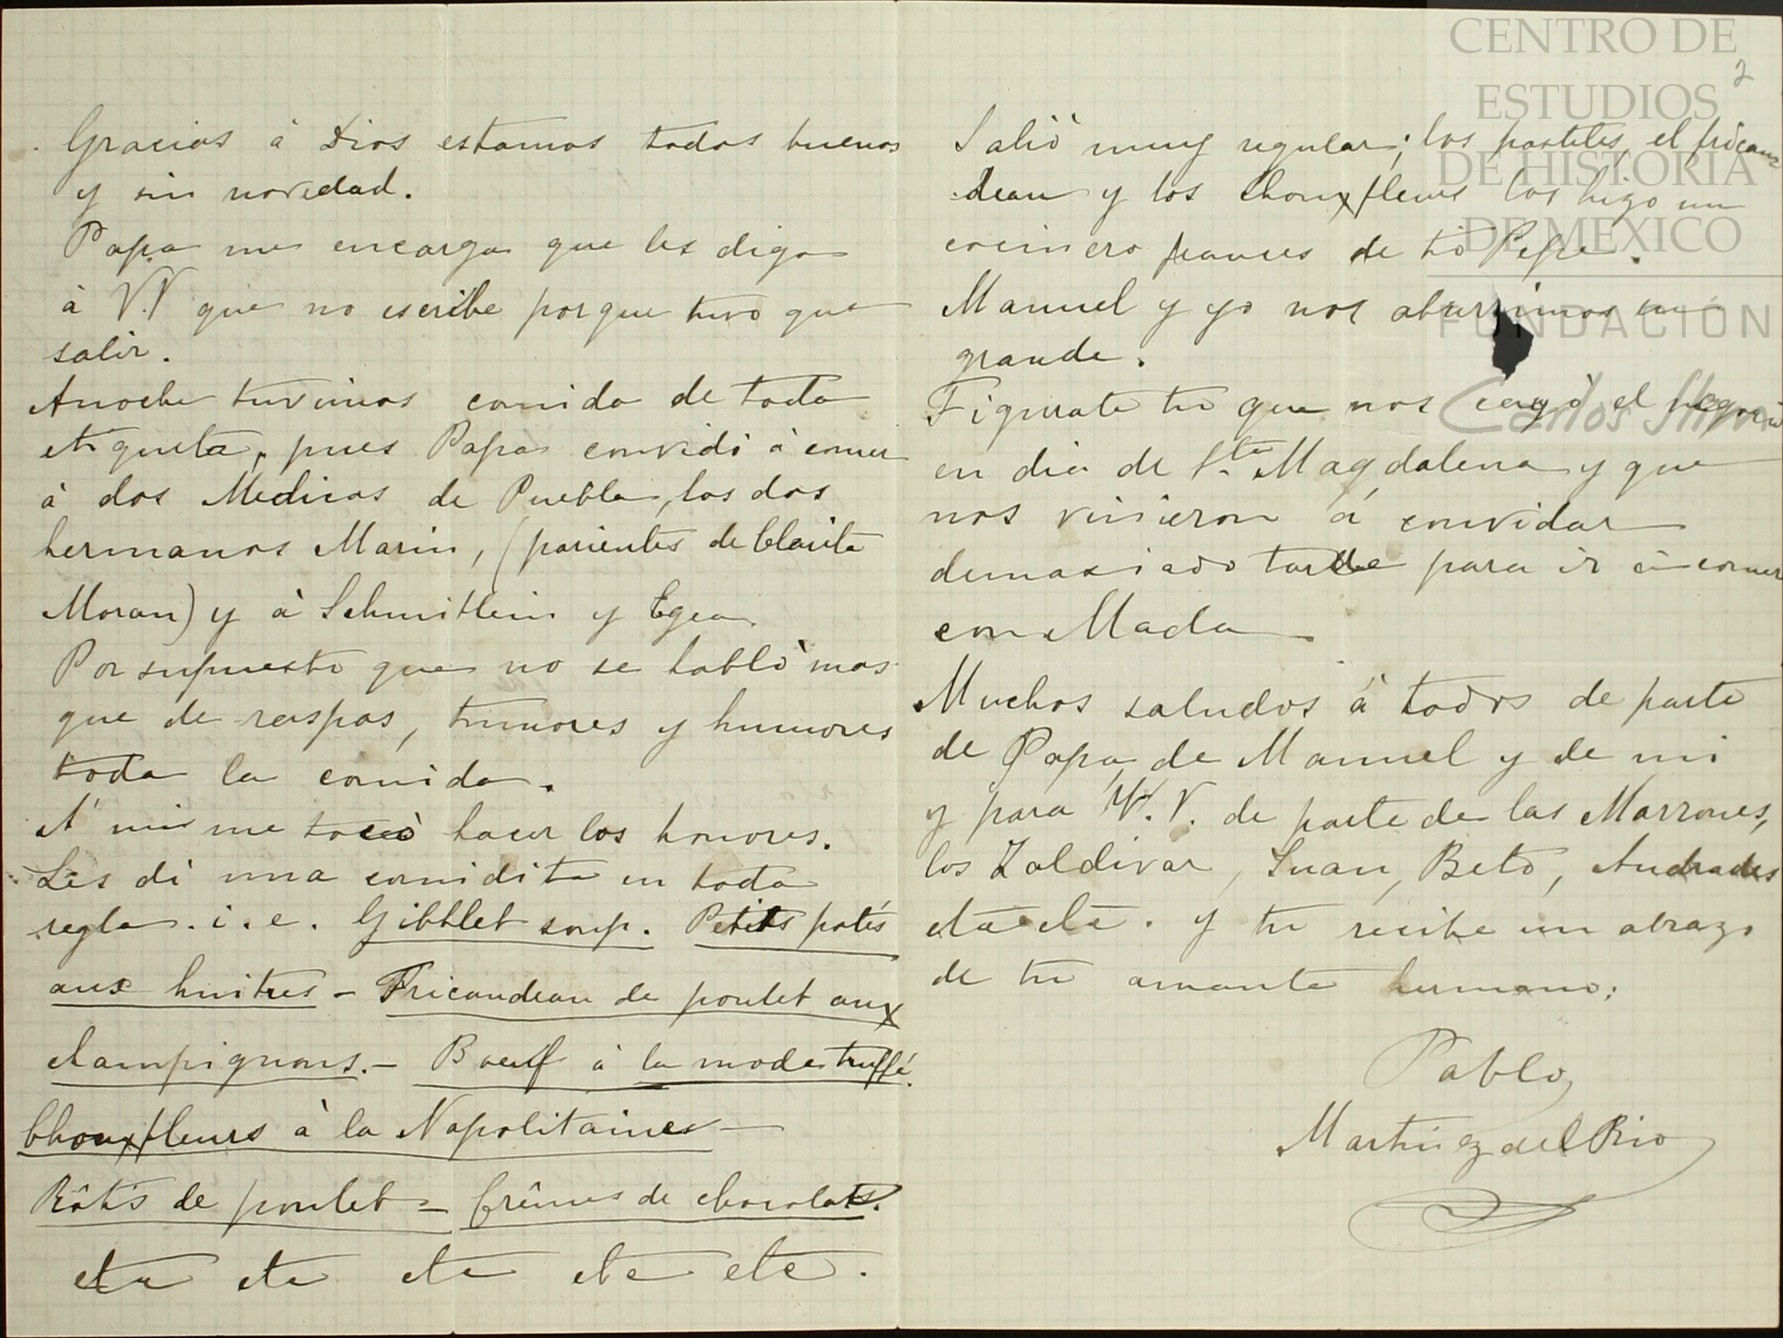 Gracias à Dios estamos todos buenos
y sin novedad.
Papa me encarga que les diga
à V.V que no escribe porque tuvo que
salir.
Anoche tuvimos comida de toda
etiqueta, pues Papa convidò à comer
à dos Medicos de Puebla, los dos
hermanos Marin, (parientes de Clarita
Moran) y à Schmitlein y Egea.
Por supuesto que no se hablò mas
que de raspas, tumores y humores
toda la comida.
A mi me tocò hacer los honores.
Les dì una comidita en toda
regla. i. e. Gibblet soup. Petits patés
aux huitres - Fricandeau de poulet aux
champignons. - Boeuf à la mode truffé.
Chouxfleurs à la Napolitaine -
Rôtis de poulet = Crêmes de chocolats.
etc etc etc etc etc.
2
Saliò muy regular; los pasteles, el frican
deau y los Chouxfleurs los hizo un
cocinero frances de tio Pepe.
Manuel y yo nos aburrimos en
grande.
Figurate tu que nos cayò el negocio
en dia de Sta Magdalena y que
nos vinieron à convidar
demasiado tarde para ir à comer
con Mada.
Muchos saludos à todos de parte
de Papa, de Manuel y de mi
y para V.V. de parte de las Marrones,
los Zaldivar, Juan, Beto, Andrades
etc etc. y tu recibe un abrazo
de tu amante hermano:
Pablo,
Martinez del Rio
CENTRO DE
ESTUDIOS
DE HISTORIA
DE MEXICO
FUNDACIÓN
Carlos Slim